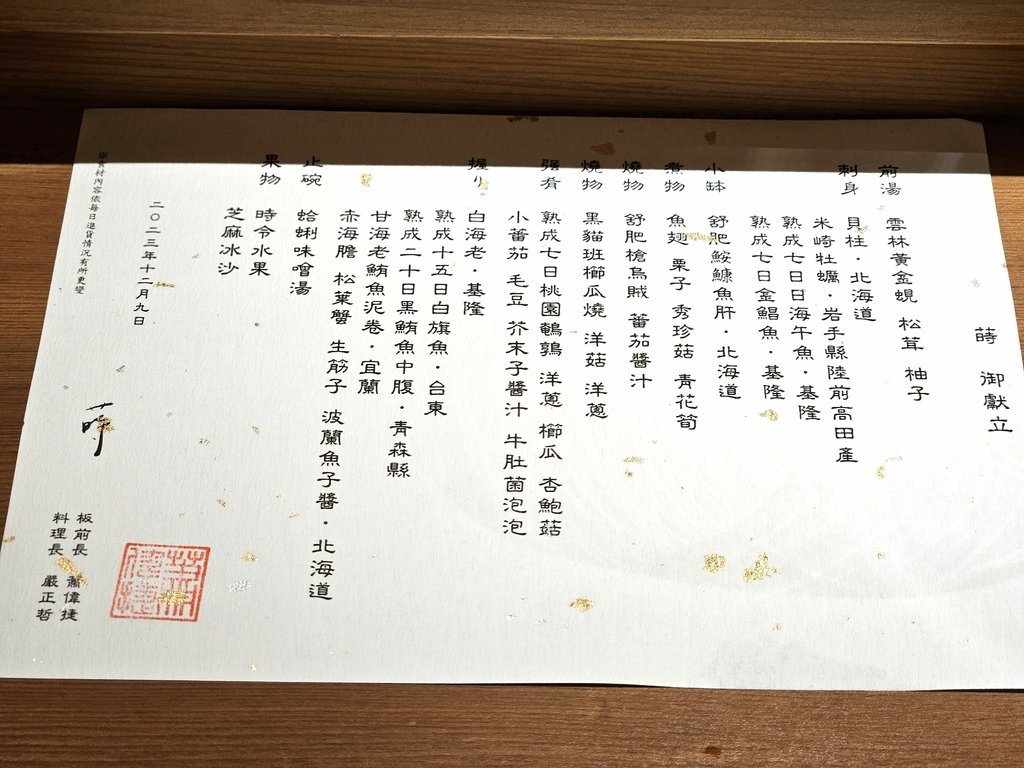 蒔 御獻立
前湯 雲林黃金蜆 松茸 柚子
刺身 貝柱・北海道
米崎牡蠣・岩手縣陸前高田產
熟成七日日海午魚・基隆
熟成七日金鯧魚・基隆
小缽 舒肥鮟鱇魚肝・北海道
煮物 魚翅 栗子 秀珍菇 青花筍
燒物 舒肥槍烏賊 蕃茄醬汁
燒物 黑貓斑櫛瓜燒 洋菇 洋蔥
强肴 熟成七日桃園鵪鶉 洋蔥 櫛瓜 杏鮑菇
小蕃茄 毛豆 芥末子醬汁 牛肚菌泡泡
握り 白海老・基隆
熟成十五日白旗魚・台東
熟成二十日黑鮪魚中腹・青森縣
甘海老鮪魚泥卷・宜蘭
赤海膽 松葉蟹 生筋子 波蘭魚子醬・北海道
止碗 蛤蜊味噌湯
果物 時令水果
芝麻冰沙
二〇二三年十二月九日
食材內容依每日進貨情況有所更變
蒔
板前長 蕭偉捷
料理長 嚴正哲